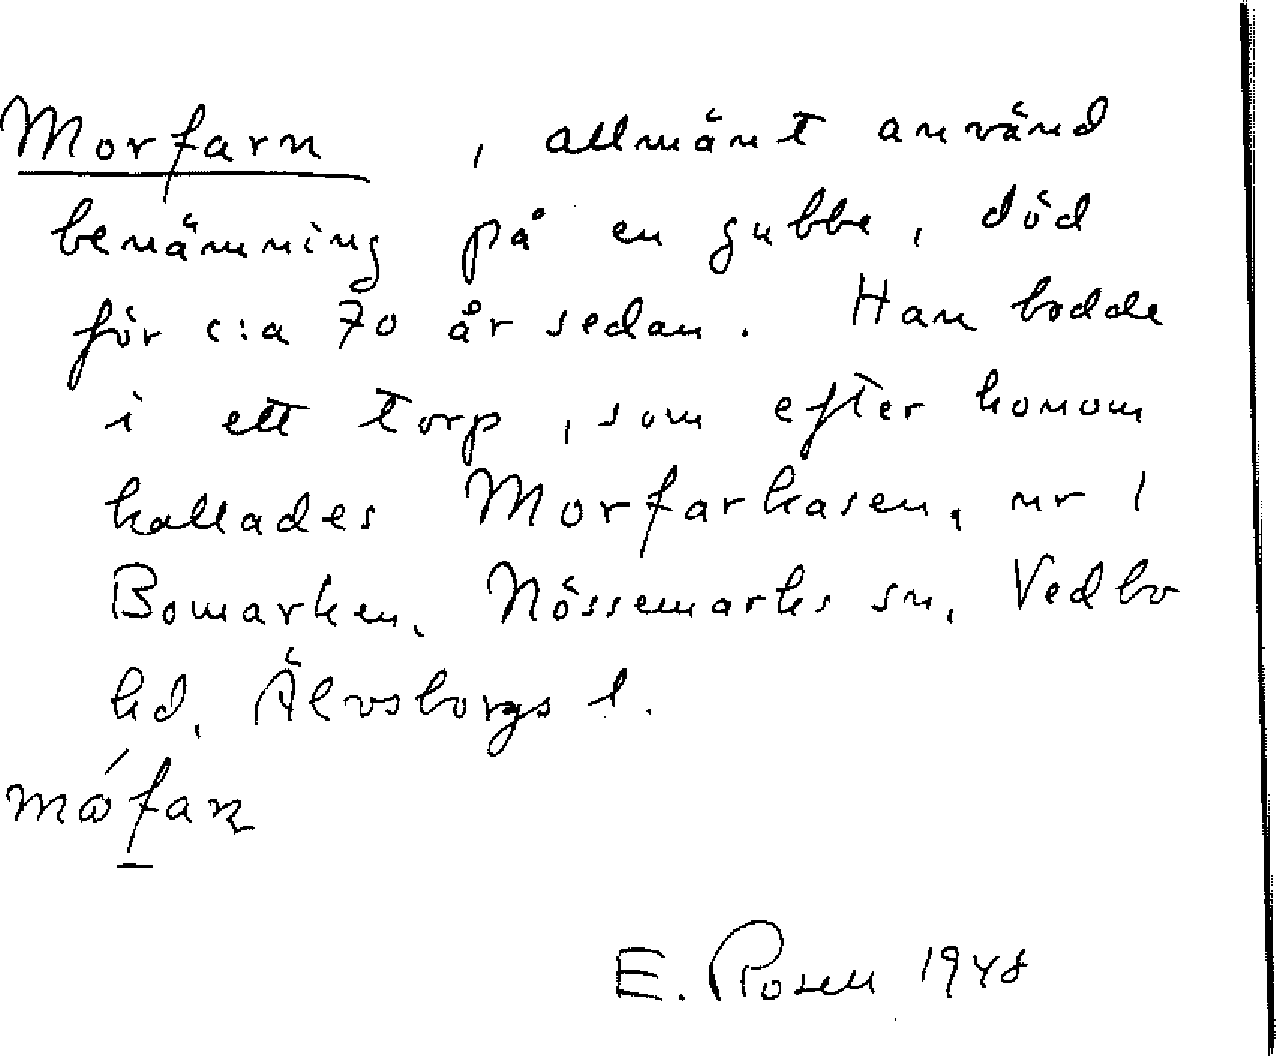 Morfarn , allmänt använd
benämning på en gubbe, död
för c:a 70 år sedan. Han bodde
i ett torp, som efter honom
kallades Morfarkasen, nr 1
Bomarken, Nössemarks sn, Vedbo
hd, Älvsborgs l.
E. Rosen 1948